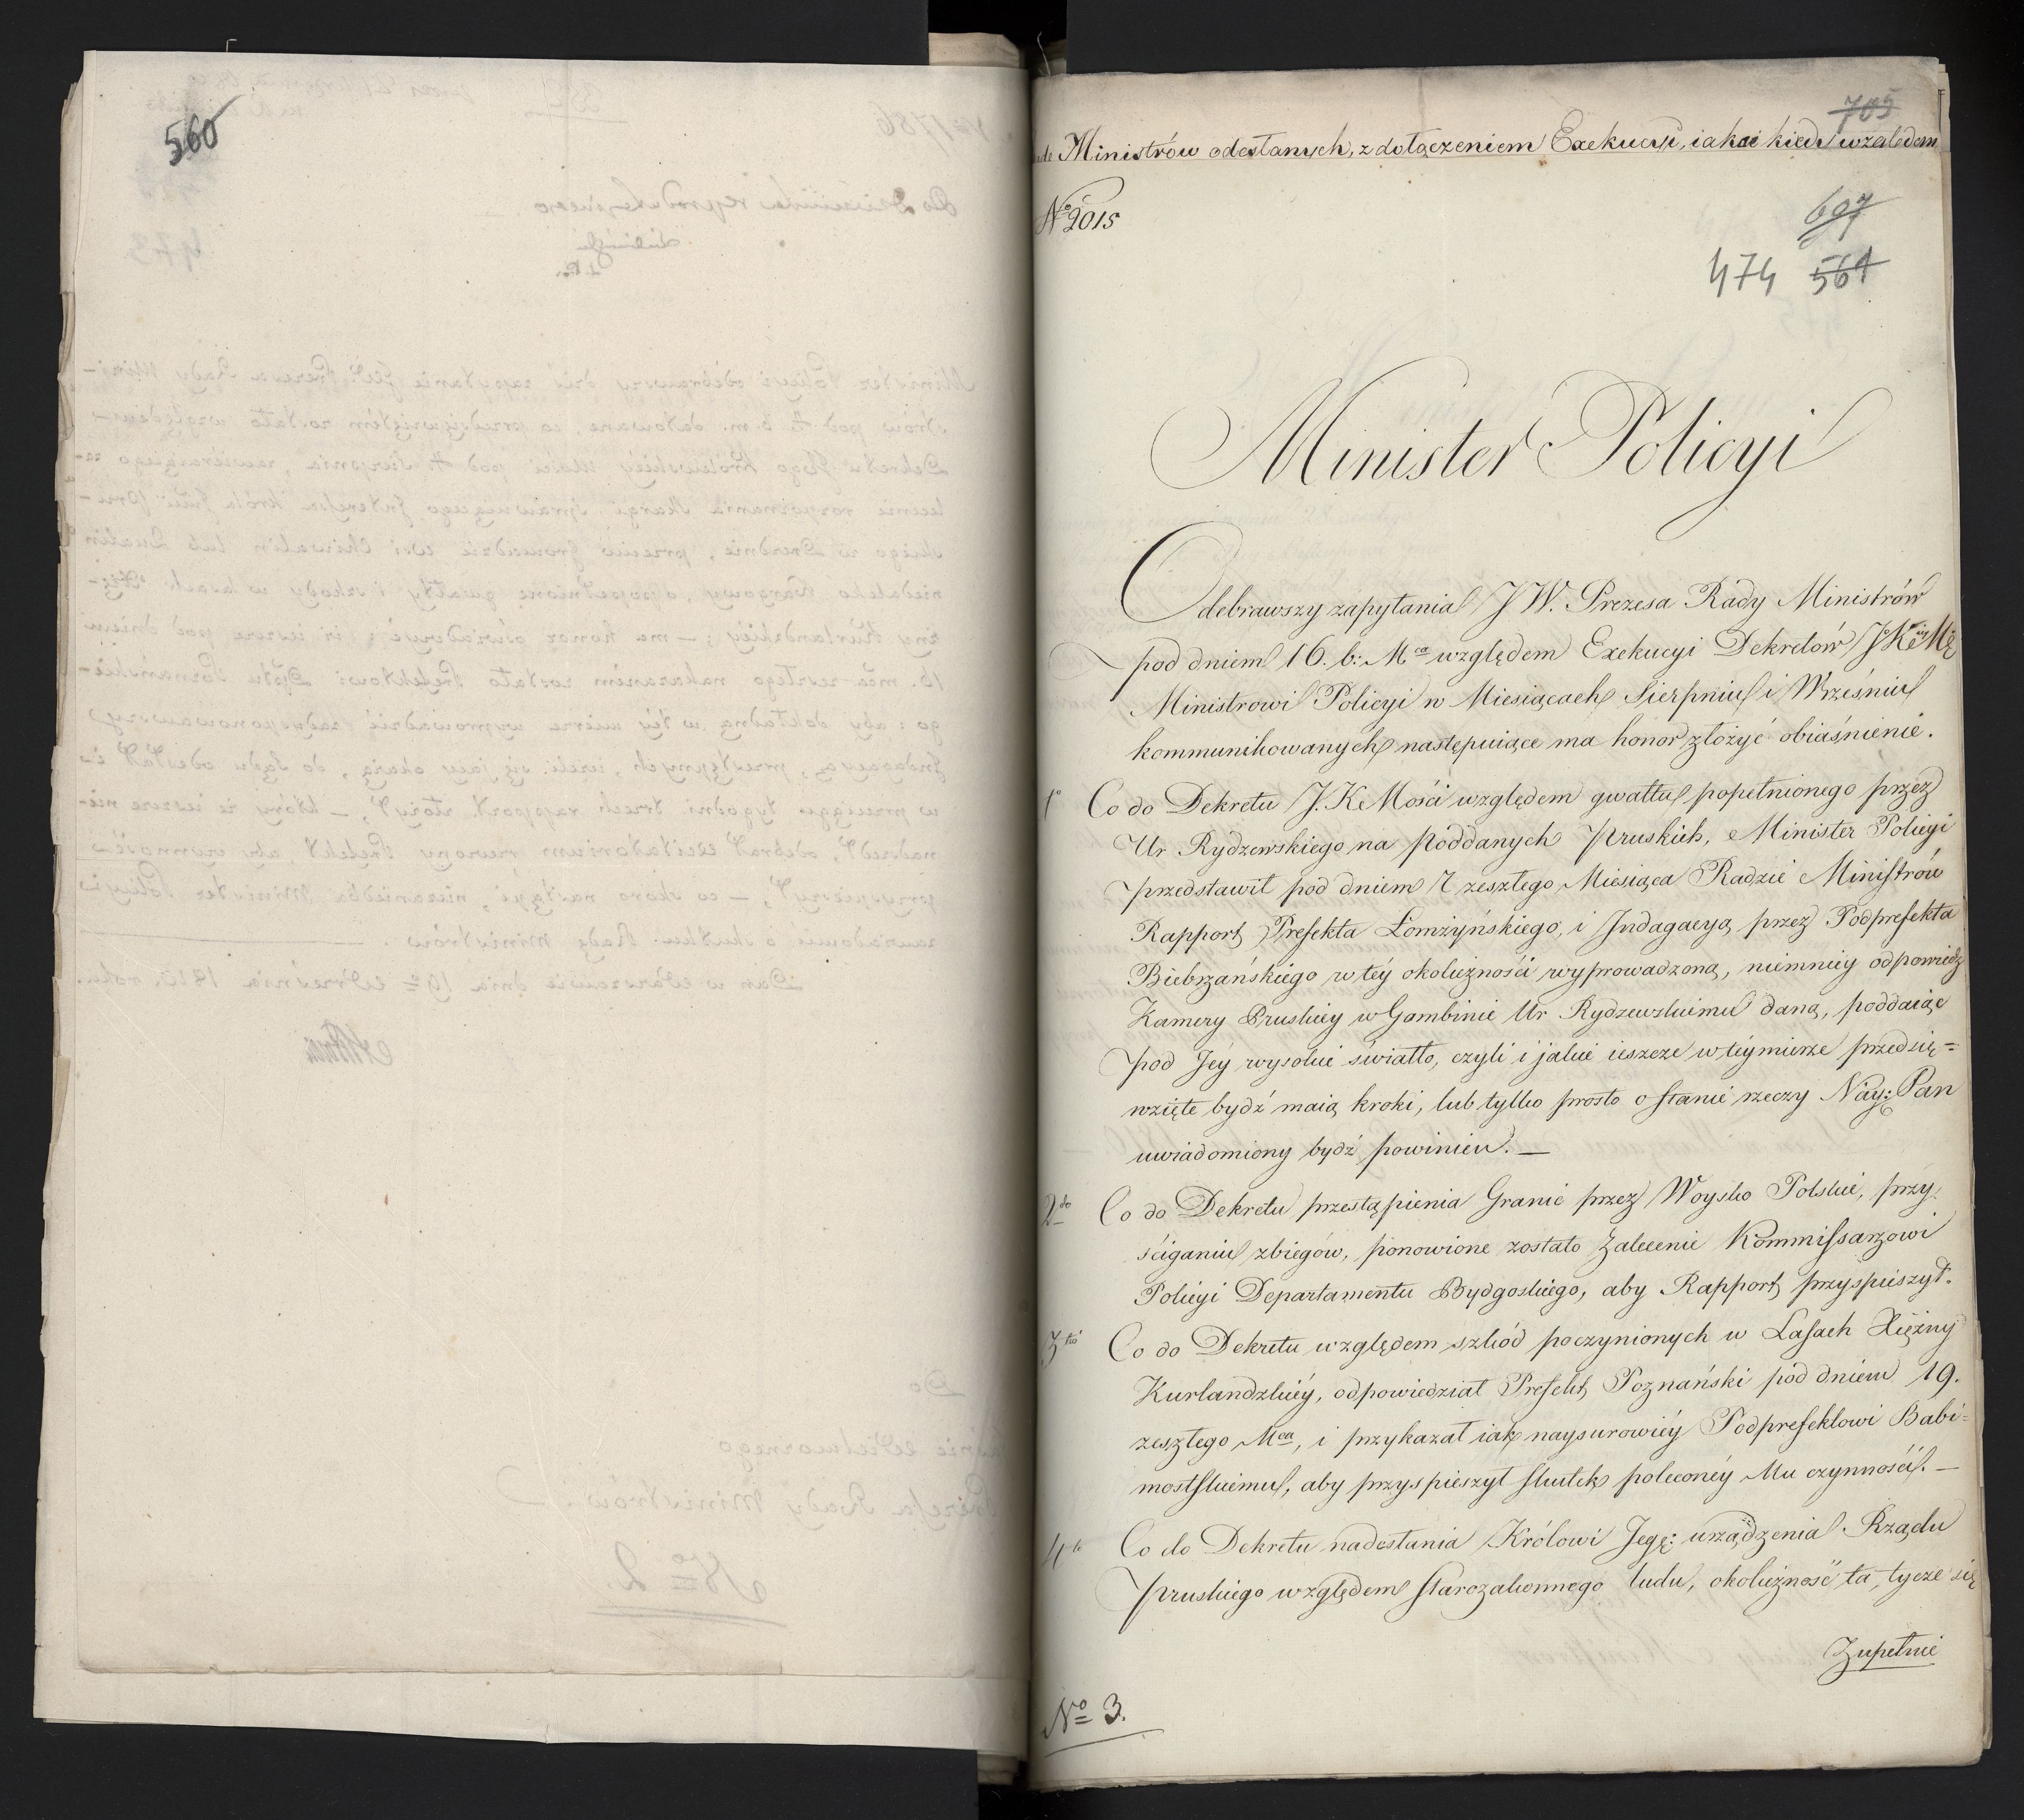 560
705
Ministrów odesłanych, z dołączeniem Exekucyi, iak i kiedy względem
№ 2015
607
474 561
Minister Policyi
Odebrawszy zapytania J W. Prezesa Rady Ministrów
pod dniem 16. b: Mca względem Exekucyi Dekretów J. Kr Mci
Ministrowi Policyi w Miesiącach Sierpniu i Wrześniu
kommunikowanych następuiące ma honor złożyć obiaśnienie.
1o Co do Dekretu J. K Mości względem gwałtu popełnionego przez
Ur Rydzewskiego na poddanych Pruskich, Minister Policyi
przedstawił pod dniem 7 zeszłego Miesiąca Radzie Ministrów
Rapport Prefekta Łomżyńskiego, i Indagacyą przez Podprefekta
Biebrzańskiego w téy okoliczności wyprowadzoną, niemniey odpowiedz
Kamery Pruskiey w Gambinie Ur Rydzewskiemu daną, poddaiąc
pod Jéy wysokie światło, czyli i jakie ieszcze w téy mierze przedsię=
wzięte bydź maią kroki, lub tylko prosto o stanie rzeczy Nay: Pan
uwiadomiony bydź powinien. —
2do Co do Dekretu przestąpienia Granic przez Woysko Polskie, przy
ściganiu zbiegów, ponowione zostało zalecenie Kommissarzowi
Policyi Departamentu Bydgoskiego, aby Rapport przyspieszył.
3tio Co do Dekretu względem szkód poczynionych w Lasach Xiężny
Kurlandzkiéy, odpowiedział Prefekt Poznański pod dniem 19.
zeszłego Mca, i przykazał iak naysurowiéy Podprefektowi Babi=
mostskiemu, aby przyspieszył skutek poleconéy Mu czynności. —
4to Co do Dekretu nadesłania Królowi Jegę: urządzenia Rządu
Pruskiego względem starozakonnego ludu, okoliczność ta, tycze się
Zupełnie
№ 3.